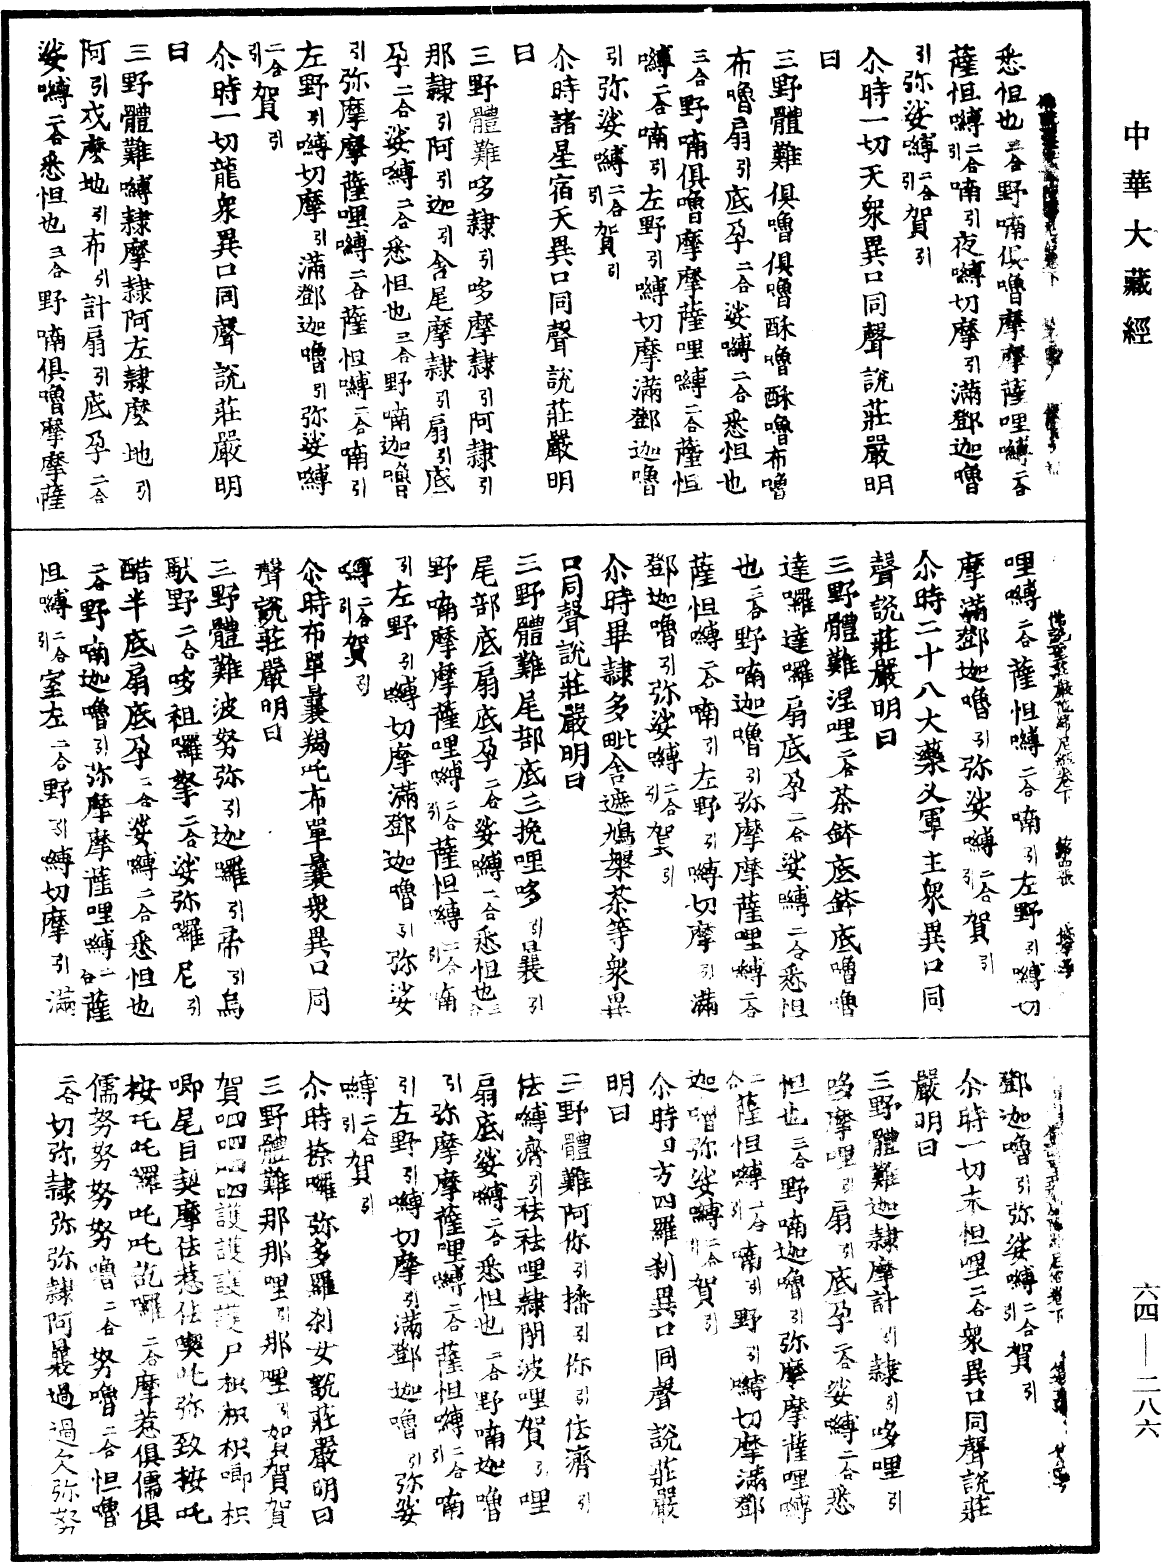 中華大藏經
悉怛也三合野喃俱嚕摩摩薩哩嚩二合
薩怛嚩二合引喃引夜嚩切摩引滿鄧迦嚕
引弥娑嚩二合引賀引
尒時一切天衆異口同聲說莊嚴明
曰
三野體難俱嚕俱嚕酥嚕酥嚕布嚕
布嚕扇引底孕二合娑嚩二合悉怛也
三合野喃俱嚕摩摩薩哩嚩二合薩怛
嚩二合喃引左野引嚩切摩滿鄧迦嚕
引弥娑嚩二合引賀引
尒時諸星宿天異口同聲說莊嚴明
曰
三野體難哆隷引哆摩隷引阿隷引
那隷引阿引迦引舍尾摩隷引扇引底
孕二合娑嚩二合悉怛也三合野喃迦嚕
引弥摩摩薩哩嚩二合薩怛嚩二合喃引
左野引嚩切摩引滿鄧迦嚕引弥娑嚩
二合引賀引
尒時一切龍衆異口同聲說莊嚴明
曰
三野體難嚩隷摩隷阿左隷麽地引
阿引戍麽地引布引計扇引底孕二合
娑嚩二合悉怛也三合野喃俱嚕摩摩薩
哩嚩二合薩怛嚩二合喃引左野引嚩切
摩滿鄧迦嚕引弥娑嚩二合引賀引
尒時二十八大藥叉軍主衆異口同
聲說莊嚴明曰
三野體難涅哩二合茶鉢底鉢底嚕嚕
達囉達囉扇底孕二合娑嚩二合悉怛
也二合野喃迦嚕引弥摩摩薩哩嚩二合
薩怛嚩二合喃引左野引嚩切摩引滿
鄧迦嚕引弥娑嚩二合引賀引
尒時畢隷多毗舍遮鳩槃茶等衆異
口同聲說莊嚴明曰
三野體難尾部底三挽哩哆引曩引
尾部底扇底孕二合娑嚩二合悉怛也三合
野喃摩摩薩哩嚩二合引薩怛嚩二合引喃
引左野引嚩切摩滿鄧迦嚕引弥娑
嚩二合引賀引
尒時布單曩羯吒布單曩衆異口同
聲說莊嚴明曰
三野體難波努弥引迦囉引帝引烏
馱野二合哆祖囉拏二合娑弥囉尼引
酷半底扇底孕二合娑嚩二合悉怛也
二合野喃迦嚕引弥摩摩薩哩嚩二合薩
怛嚩二合引室左二合野引嚩切摩引滿
鄧迦嚕引弥娑嚩二合引賀引
尒時一切末怛哩二合衆異口同聲說莊
嚴明曰
三野體難迦隷摩計引隷引哆哩引
哆摩哩引扇引底孕二合娑嚩二合悉
怛也三合野喃迦嚕引弥摩摩薩哩嚩
二合薩怛嚩二合引喃引野引嚩切摩滿鄧
迦嚕弥娑嚩二合引賀引
尒時四方四羅刹異口同聲說莊嚴
明曰
三野體難阿你引播引你引佉濟引
佉嚩濟引袪袪哩隷閉波哩賀引哩
扇底娑嚩二合悉怛也二合野喃迦嚕
引弥摩摩薩哩嚩二合薩怛嚩二合引喃
引左野引嚩切摩引滿鄧迦嚕引弥娑
嚩二合引賀引
尒時捺囉弥多羅刹女說莊嚴明曰
三野體難那那哩引那哩引賀賀
賀呬呬呬呬護護護護尸枳枳枳唧枳
唧尾目契摩佉惹佉喫吒弥致按吒
按吒吒囉吒吒訖囉二合摩惹俱儒俱
儒努努努努嚕二合努嚕二合怛嚕
二合切弥隷弥弥隷阿曩過過入弥努
六四——二八六